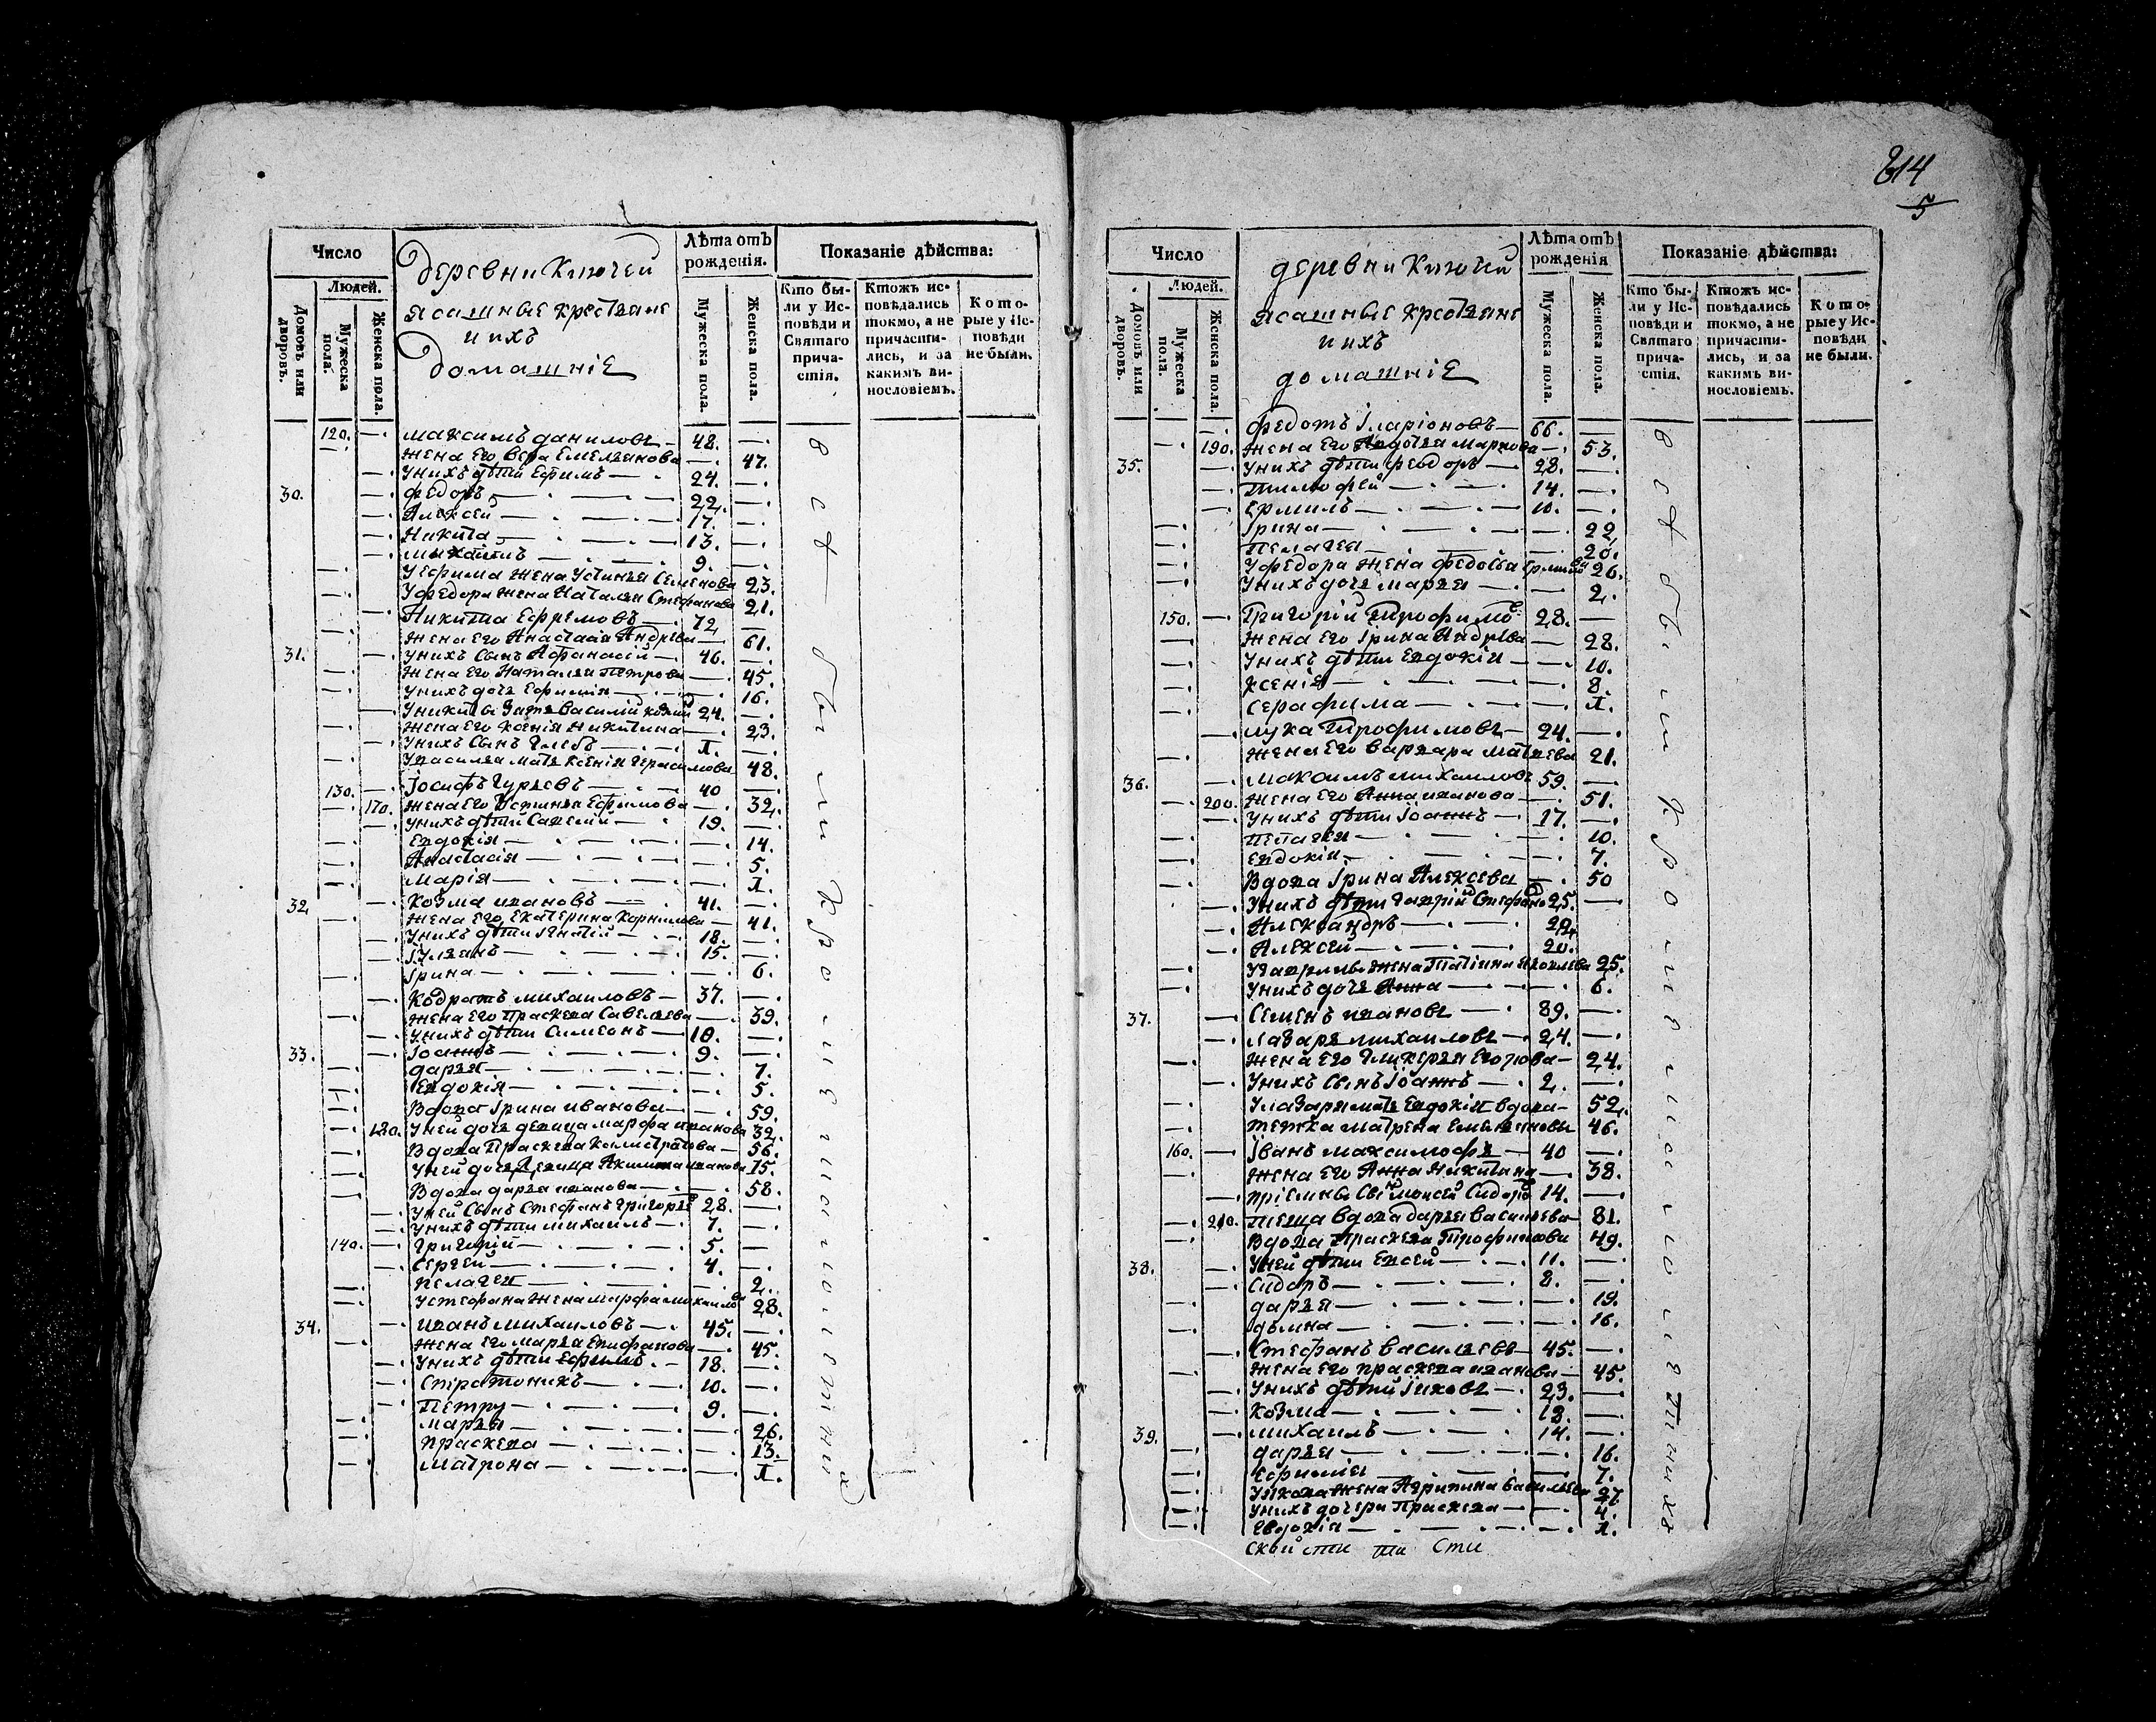 Число
Людей.
Домовъ или дворовъ.
Мужеска пола.
Женска пола.
деревни Ключей
ясашные крестьяне
и ихъ
домашніе
Лѣта отъ рожденія.
Мужеска пола.
Женска пола.
Показаніе дѣйства:
Кто бы-
ли у Ис-
повѣди и
Святаго
прича-
стія.
Ктожъ ис-
повѣдались
токмо, а не
причасти-
лись, и за
какимъ ви-
нословіемъ.
Кото-
рые у Ис-
повѣди
не были.
120. Максимъ даниловъ 48.
жена его Вера Емельянова 47.
у нихъ дѣти Ефимъ 24.
30. Федоръ 22.
Алексей 17.
Никита 13.
Михаилъ 9.
у Ефима жена Устинья Семенова 23.
у Федора жена Наталья Стефанова 21.
Никита Ефремовъ 72
жена его Анастасія Андреева 61.
31. у нихъ сынъ Афанасій 46.
жена его Наталья Петрова 45.
у нихъ дочь Ефимія 16.
у Никиты зять Василій 24.
жена его Ксенія Никитина 23.
у нихъ сынъ Глебъ 1.
у Василья мать Ксенія Герасимова 48.
130. Іосифъ Гурьевъ 40
170. жена его Устинья Ефимова 32.
у нихъ дѣти Савелій 19.
Евдокія 14.
Анастасія 5.
Марія 1.
32. Козма ивановъ 41.
жена его Екатерина Корнилова 41.
у нихъ дѣти Игнатій 18.
Іульянъ 15.
Ірина 6.
Кодратъ михаиловъ 37.
жена его Праскева Савельева 39.
у нихъ дѣти Симеонъ 10.
33. Іоаннъ 9.
дарья 7.
Евдокія 5.
Вдова Ірина иванова 59.
180. у ней дочь девица марфа иванова 32.
Вдова Праскева Калистратова 56.
у ней дочь девица Акилина иванова 15.
Вдова дарья иванова 58.
у ней сынъ Стефанъ Григорьев 28.
у нихъ дѣти михаилъ 7.
140. Григорій 5.
Сергей 4.
Пелагея 2.
у стефана жена марфа михаилова 28.
34. иванъ михаиловъ 45.
жена его марья Епифанова 45.
у нихъ дѣти Ефимъ 18.
Стратоникъ 10.
Петръ 9.
марья 26.
праскева 13.
матрона 1.
всѣ были при исповѣди
214
5
Число
Людей.
Домовъ или дворовъ.
Мужеска пола.
Женска пола.
деревни Ключей
ясашные крестьяне
и ихъ
домашніе
Лѣта отъ рожденія
Мужеска пола.
Женска пола.
Показаніе дѣйства:
Кто бы-
ли у Ис-
повѣди и
Святаго
прича-
стія.
Ктожъ ис-
повѣдались
токмо, а не
причасти-
лись, и за
какимъ ви-
нословіемъ.
Кото-
рые у Ис-
повѣди
не были.
Федотъ Іларіоновъ 66.
190. жена его Авдотья Маркова 53.
35. у нихъ дѣти Феодоръ 28.
Тимофей 14.
Ермилъ 10.
Ірина 22
Пелагея 20.
у Федора жена Федосья 26.
у нихъ дочь марья 2.
150. Григорій Трофимов 28.
жена его Ірина Андреева 28.
у нихъ дѣти Евдокія 10.
Ксенія 8.
Серафима 1.
лука Трофимовъ 24.
жена его варвара матвеева 21.
36. максимъ михаиловъ 59.
200. жена его Анна иванова 51.
у нихъ дѣти Іоаннъ 17.
Пелагея 10.
Евдокія 7.
Вдова Ірина Алексеева 50
у нихъ дѣти Гаврій Стефанов 25.
Александръ 22
Алексей 20.
у Гаврилы жена Татіана Яковлева 25.
у нихъ дочь Анна 6.
37. Семенъ ивановъ 89.
лазарь михаиловъ 24.
жена его Гликерья Егорова 24.
у нихъ сынъ Іоаннъ 2.
у лазаря мать Евдокія вдова 52.
тетка матрена Емельянова 46.
160. Іванъ максимофъ 40
жена его Анна Никитина 38.
моисей Сидоров 14.
210. теща вдова дарья васильева 81.
Вдова Праскева Трофимова 49.
38. у ней дѣти Евсей 11.
Сидоръ 8.
дарья 19.
домна 16.
Стефанъ васильевъ 45.
жена его праскева иванова 45.
у нихъ дѣти Іяковъ 23.
Козма 18.
39. михаилъ 14.
дарья 16.
Ефимія 7.
у якова жена Агрипина васильева 27.
у нихъ дочери Праскева 4.
Евдокія 1.